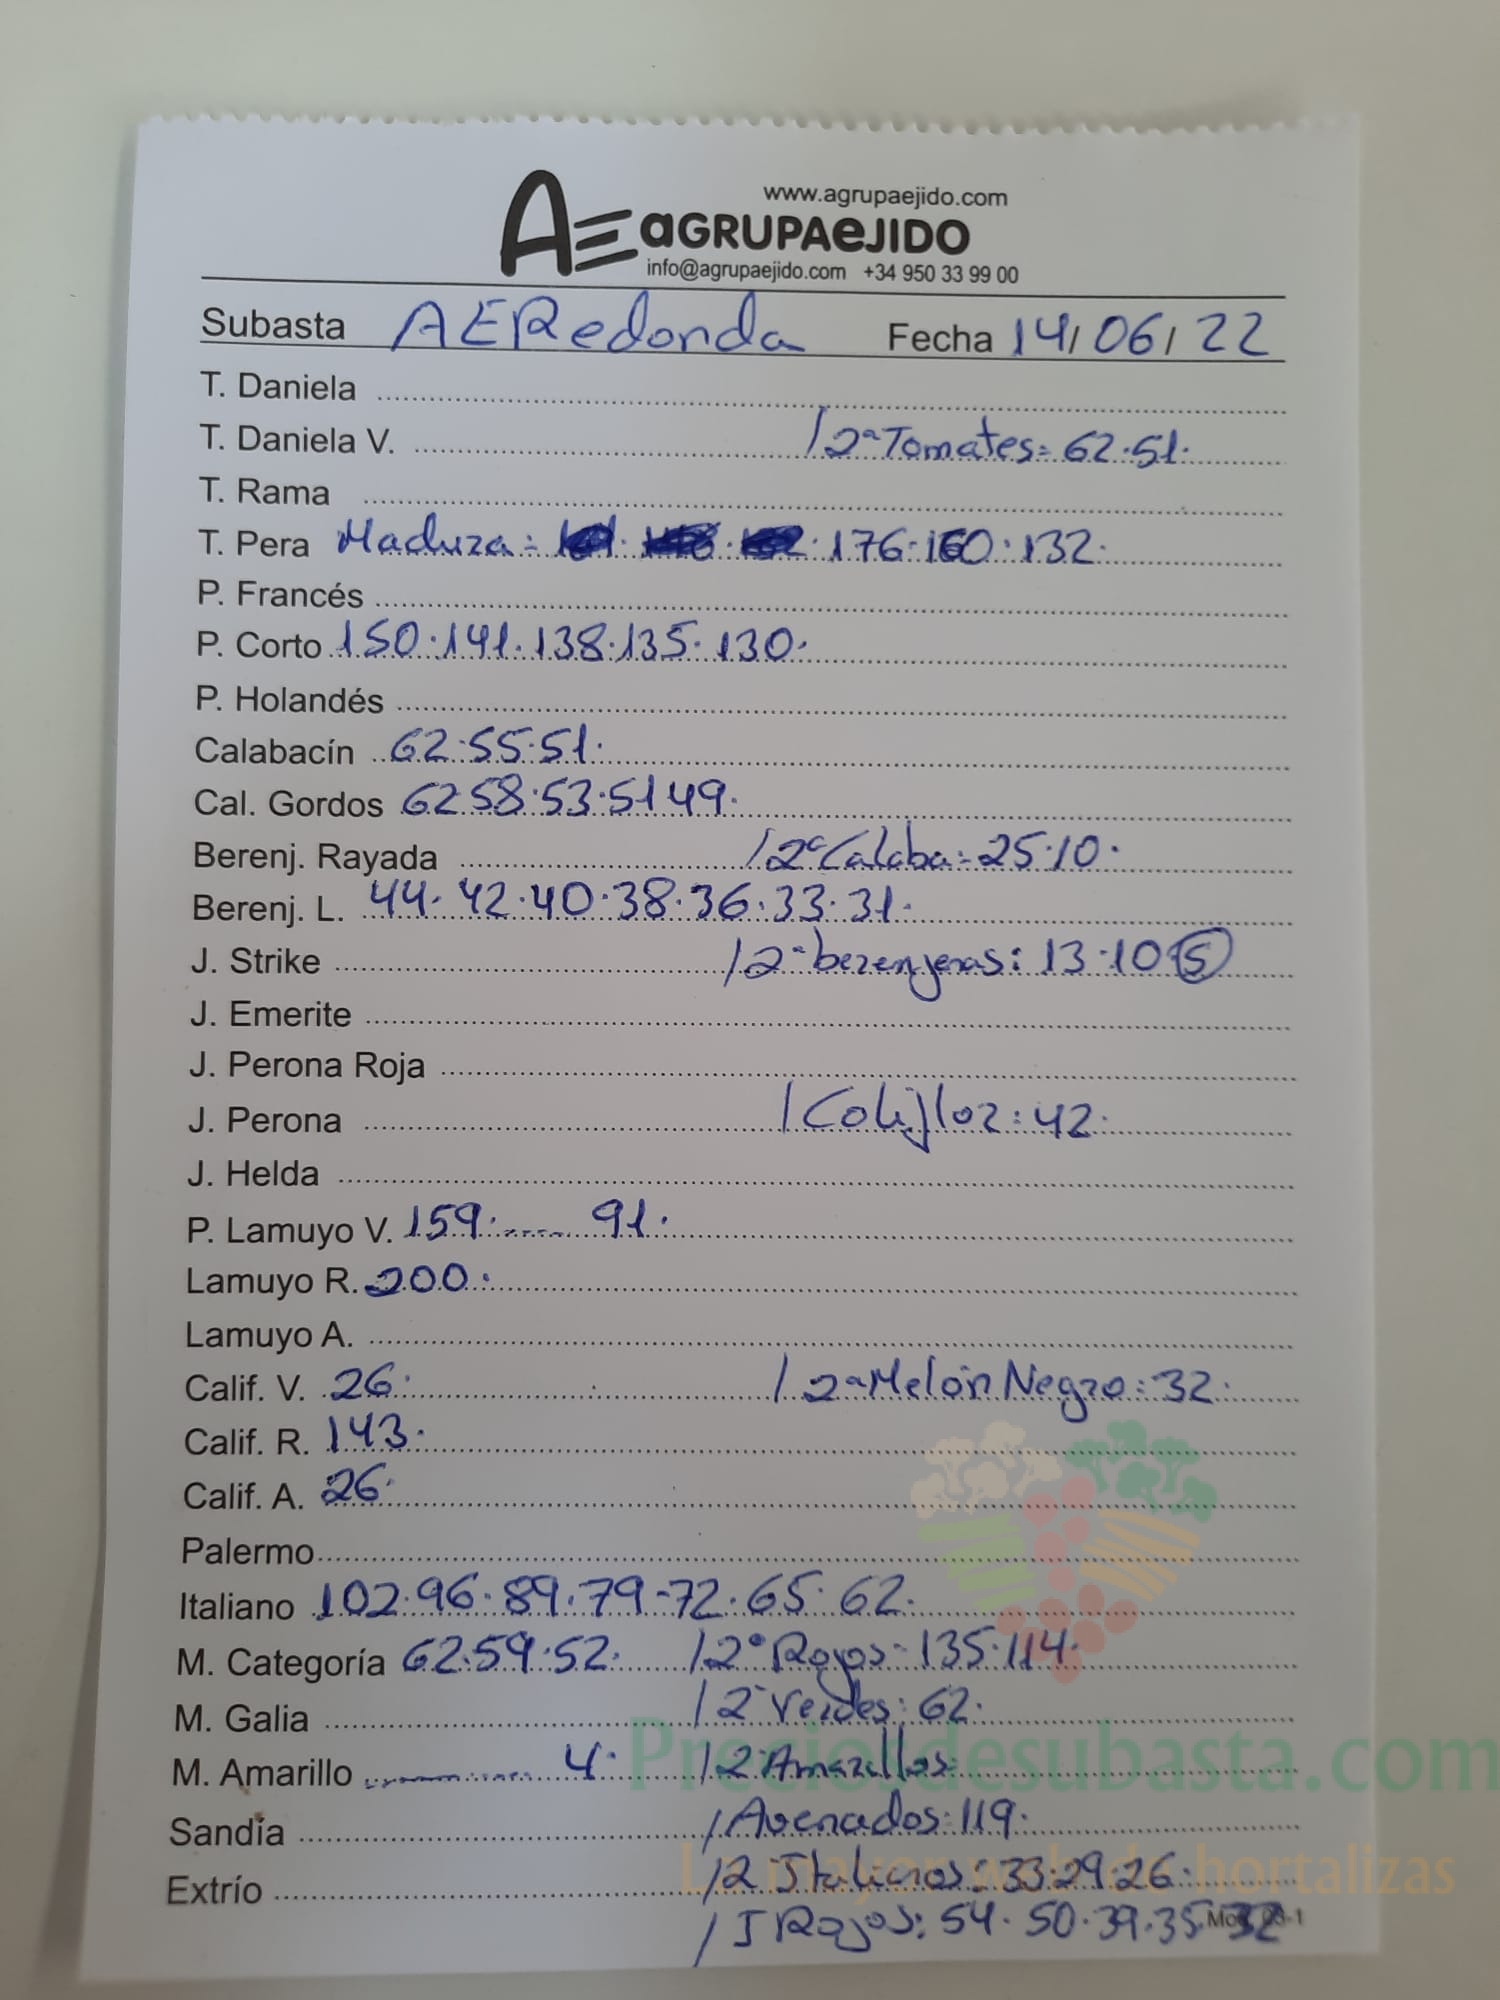 www.agrupaejido.com
AE aGRUPAeJIDO
info@agrupaejido.com +34 950 33 99 00
Subasta AERedonda Fecha 14/06/22
T. Daniela
T. Daniela V. /2ª Tomates= 62.51.
T. Rama
T. Pera Maduza= 176.160.132.
P. Francés
P. Corto 150.141.138.135.130.
P. Holandés
Calabacín 62.55.51.
Cal. Gordos 62 58.53.51 49.
Berenj. Rayada /2ª Calaba=25.10.
Berenj. L. 44.42.40.38.36.33.31.
J. Strike /2ª berenjenas: 13.10 5
J. Emerite
J. Perona Roja
J. Perona /Coliflor: 42.
J. Helda
P. Lamuyo V. 159. ..... 91.
Lamuyo R. 200.
Lamuyo A.
Calif. V. 26. /2ª Melón Negro: 32.
Calif. R. 143.
Calif. A. 26.
Palermo
Italiano 102.96.89.79-72.65.62.
M. Categoría 62.59.52. /2ª Rojos= 135.114.
M. Galia /2ª Verdes: 62.
M. Amarillo ........ 4. /2ª Amarillos:
Preciosdesubasta.com
Sandía /Asenados: 119.
Extrío /2 Italianos: 33.29.26.
La mayor web de hortalizas
/I Rojos: 54.50.39.35.32